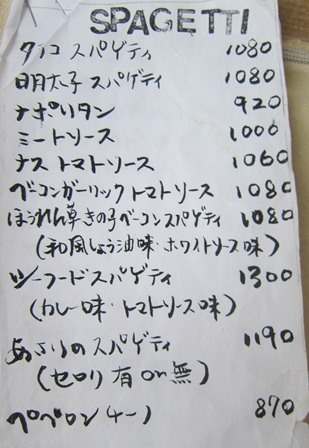 SPAGETTI
タラコ スパゲティ 1080
明太子 スパゲティ 1080
ナポリタン 920
ミートソース 1000
ナス トマトソース 1060
ベーコンガーリックトマトソース 1080
ほうれん草きの子ベーコンスパゲティ 1080
(和風しょう油味・ホワイトソース味)
シーフードスパゲティ 1300
(カレー味・トマトソース味)
あさりのスパゲティ 1190
(セロリ 有 or 無)
ペペロンチーノ 870